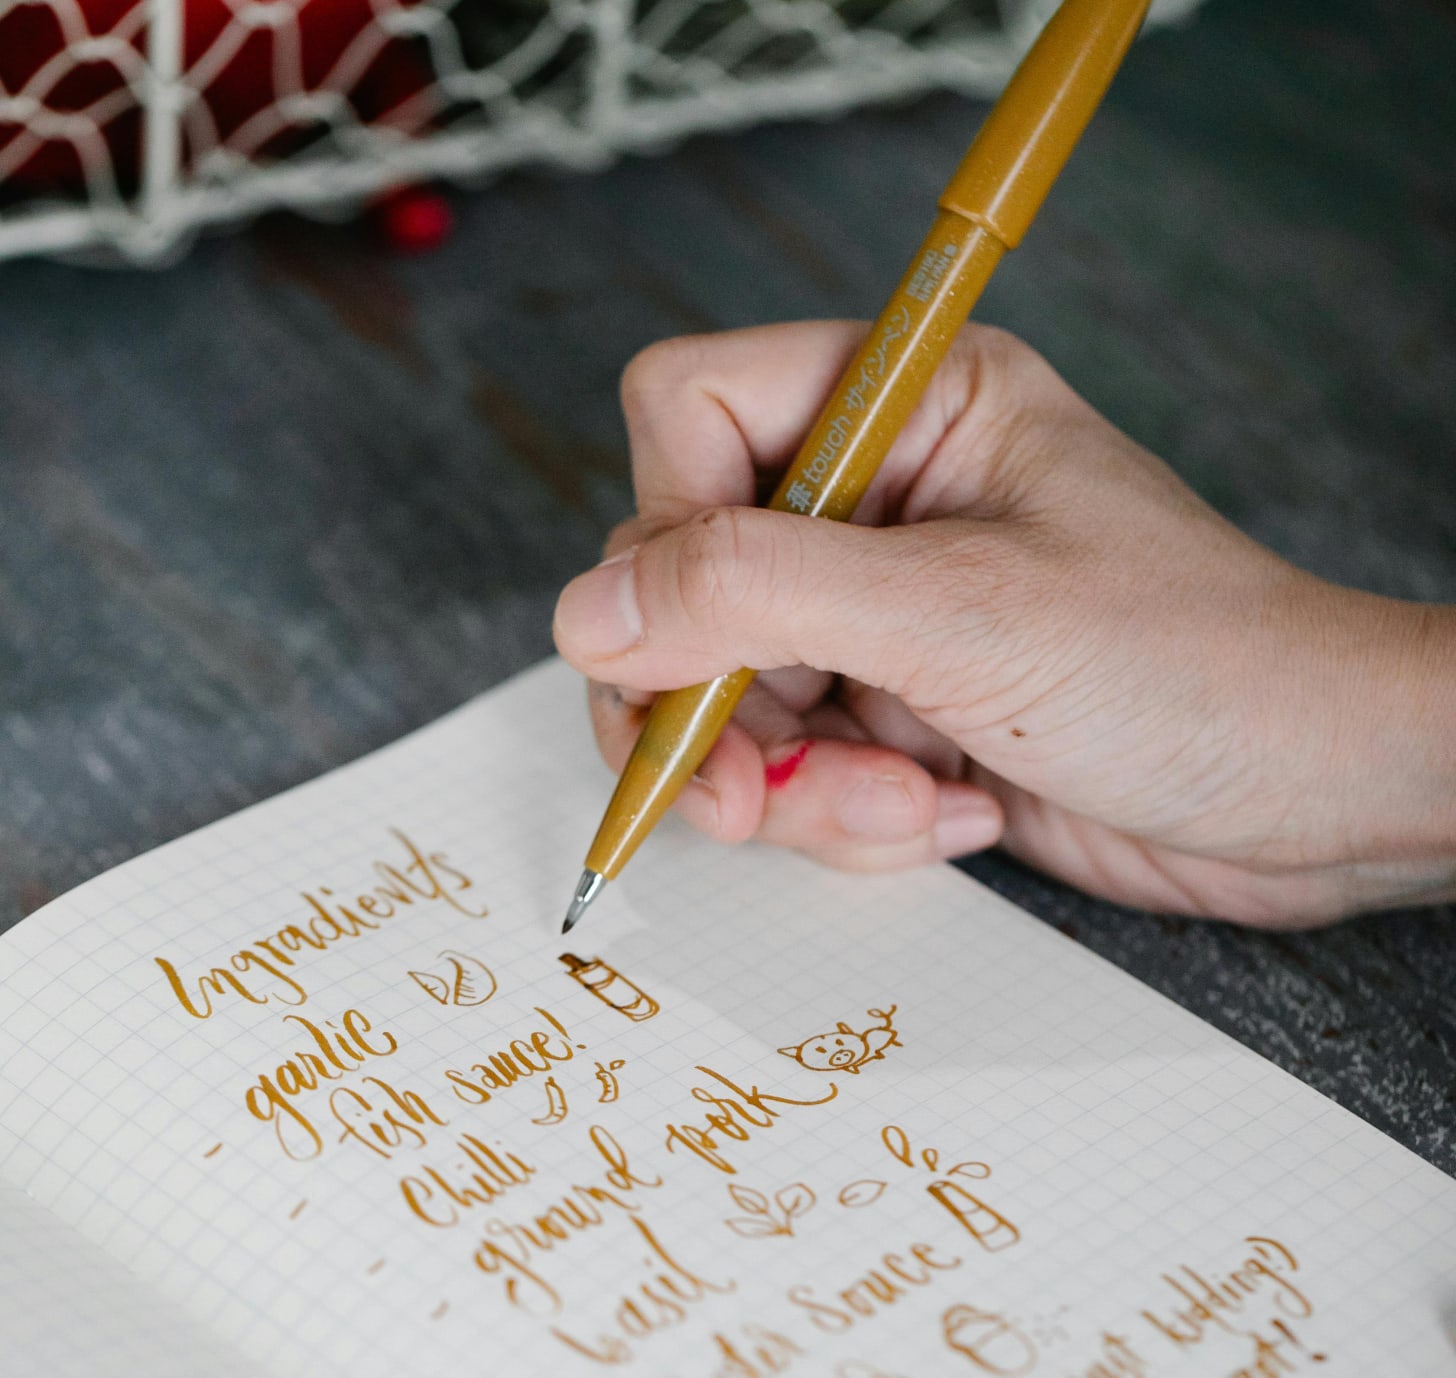 touch サインペン
Ingradients
garlic
fish sauce!
chilli
ground pork
basil
Souce
kidding:)